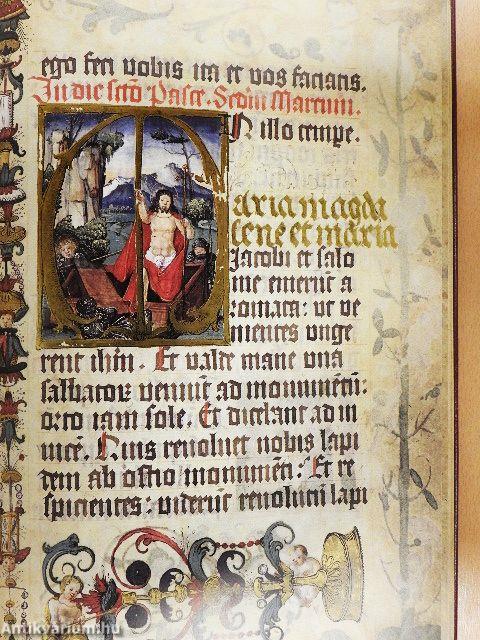 ego feci vobis ita et vos faciatis.
In die scto Pasce. Scdm Marcum.
N illo tempe.
aria magda
lene et maria
Jacobi et salo
me emerut a
romata: ut ve
nientes unge
rent ihm. Et valde mane una
sabbatorz veniut ad monumetu:
orto iam sole. Et dicebant ad in
vice. Quis revoluet nobis lapi
dem ab ostio monumeti: Et re
spicientes: viderut revolutu lapi
Antikvárium.hu